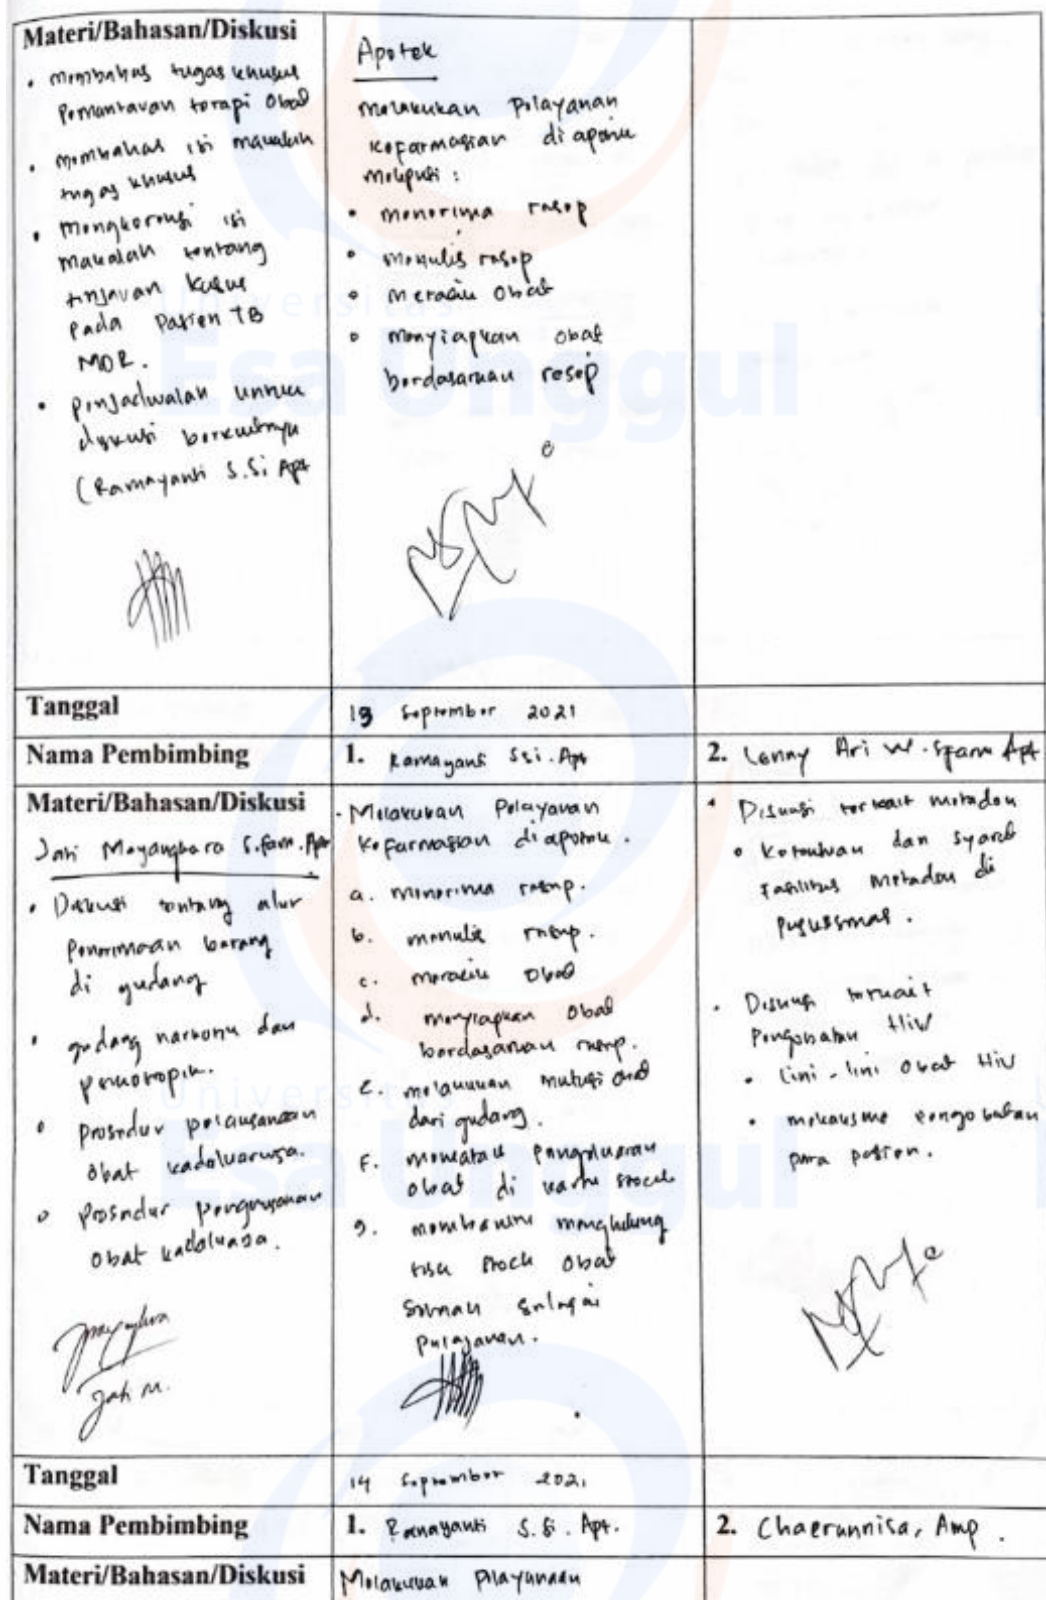 Materi/Bahasan/Diskusi
• Membahas tugas khusus
Pemantauan terapi Obat
• Membahas isi makalah
tugas khusus
• Mengkoreksi isi
makalah tentang
tinjauan kasus
pada Pasien TB
MDR.
• penjadwalan untuk
diskusi berikutnya
(Ramayanti S.Si Apt
Apotek
Melakukan Pelayanan
kefarmasian di apotek
meliputi :
• Menerima resep
• Menulis resep
• Meracik Obat
• Menyiapkan Obat
berdasarkan resep
Universitas
Esa Unggul
Tanggal
13 September 2021
Nama Pembimbing
1. Ramayanti SSi. Apt
2. Lenny Ari W. SFarm Apt
Materi/Bahasan/Diskusi
Jati Mayangkara S.Farm. Apt
• Diskusi tentang alur
Penerimaan barang
di gudang
• gudang narkotik dan
psikotropik.
• Prosedur pelaksanaan
Obat kadaluarsa.
• Prosedur
Obat kadaluasa.
Jati M.
- Melakukan Pelayanan
Kefarmasian di apotek.
a. Menerima resep.
b. menulis resep.
c. meracik Obat
d. menyiapkan Obat
berdasarkan resep.
e. melakukan mutasi obat
dari gudang.
f. mencatat pengeluaran
obat di kartu stock
g. membantu menghitung
sisa stock Obat
setelah selesai
pelayanan.
• Diskusi terkait metadon
• Ketentuan dan syarat
Fasilitas Metadon di
Puskesmas.
• Diskusi terkait
Pengobatan HIV
• Lini-lini Obat HIV
• mekanisme pengobatan
para pasien.
Universitas
Esa Unggul
Tanggal
14 September 2021
Nama Pembimbing
1. Ramayanti S.Si. Apt.
2. Chaerunnisa, Amp.
Materi/Bahasan/Diskusi
Melakukan Pelayanan